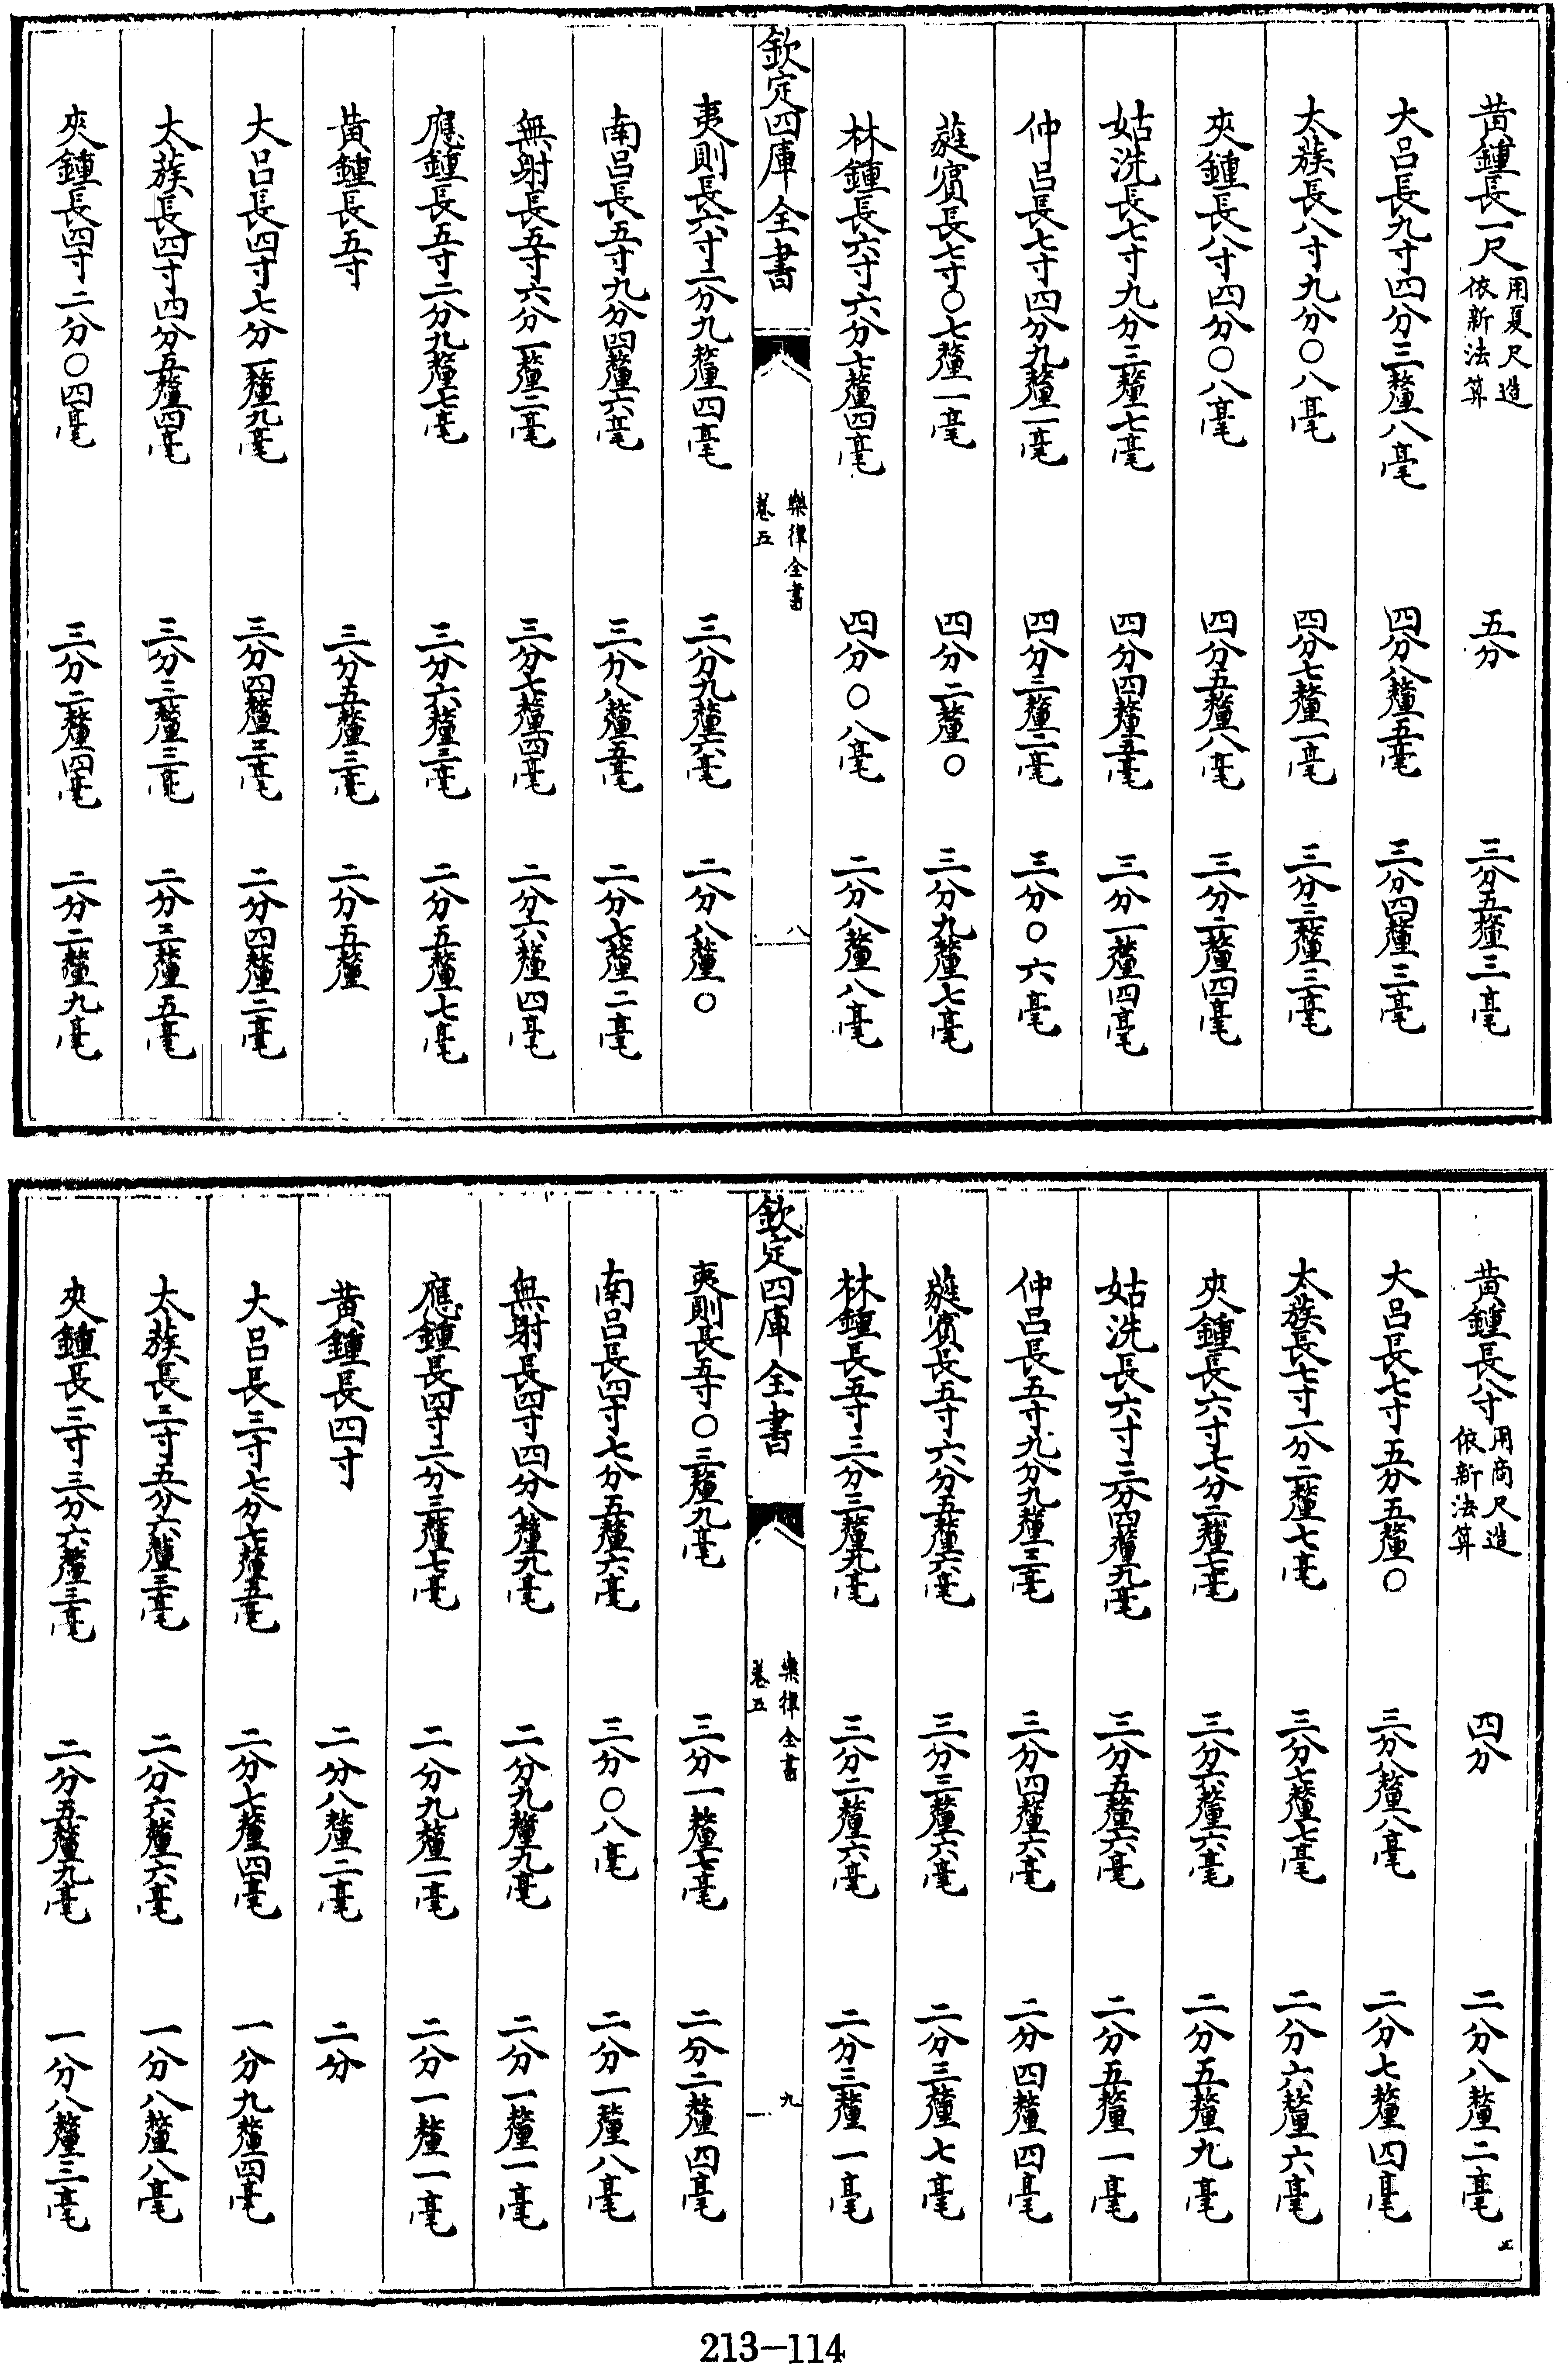 黃鍾長一尺 用夏尺造 依新法算 五分 三分五釐三毫
大呂長九寸四分三釐八毫 四分八釐五毫 三分四釐三毫
太蔟長八寸九分〇八毫 四分七釐一毫 三分三釐三毫
夾鍾長八寸四分〇八毫 四分五釐八毫 三分二釐四毫
姑洗長七寸九分三釐七毫 四分四釐五毫 三分一釐四毫
仲呂長七寸四分九釐一毫 四分三釐二毫 三分〇六毫
蕤賓長七寸〇七釐一毫 四分二釐〇 三分九釐七毫
林鍾長六寸六分七釐四毫 四分〇八毫 二分八釐八毫
欽定四庫全書 樂律全書 卷五 八
夷則長六寸二分九釐四毫 三分九釐六毫 二分八釐〇
南呂長五寸九分四釐六毫 三分八釐五毫 二分七釐二毫
無射長五寸六分一釐二毫 三分七釐四毫 二分六釐四毫
應鍾長五寸二分九釐七毫 三分六釐三毫 二分五釐七毫
黃鍾長五寸 三分五釐三毫 二分五釐
大呂長四寸七分一釐九毫 三分四釐三毫 二分四釐二毫
太蔟長四寸四分五釐四毫 三分三釐三毫 二分三釐五毫
夾鍾長四寸二分〇四毫 三分二釐四毫 二分二釐九毫
黃鍾長八寸 用商尺造 依新法算 四分 二分八釐二毫
大呂長七寸五分五釐〇 三分八釐八毫 二分七釐四毫
太蔟長七寸一分二釐七毫 三分七釐七毫 二分六釐六毫
夾鍾長六寸七分二釐七毫 三分六釐六毫 二分五釐九毫
姑洗長六寸三分四釐九毫 三分五釐六毫 二分五釐一毫
仲呂長五寸九分九釐三毫 三分四釐六毫 二分四釐四毫
蕤賓長五寸六分五釐六毫 三分三釐六毫 二分三釐七毫
林鍾長五寸三分三釐九毫 三分二釐六毫 二分三釐一毫
欽定四庫全書 樂律全書 卷五 九
夷則長五寸〇三釐九毫 三分一釐七毫 二分二釐四毫
南呂長四寸七分五釐六毫 三分〇八毫 二分一釐八毫
無射長四寸四分八釐九毫 二分九釐九毫 二分一釐一毫
應鍾長四寸二分三釐七毫 二分九釐一毫 二分一釐一毫
黃鍾長四寸 二分八釐二毫 二分
大呂長三寸七分七釐五毫 二分七釐四毫 一分九釐四毫
太蔟長三寸五分六釐三毫 二分六釐六毫 一分八釐八毫
夾鍾長三寸三分六釐三毫 二分五釐九毫 一分八釐三毫
213-114